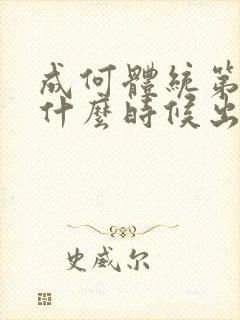 成何體統第
什麼時候出
史威尔